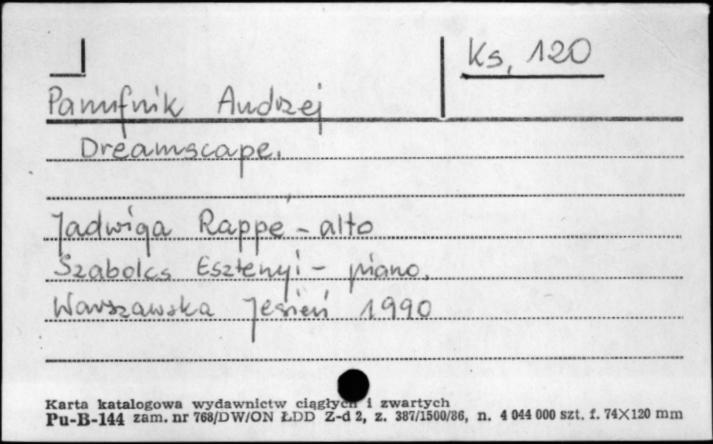 Ks, 120
Panufnik Andrzej
Dreamscape.
Jadwiga Rappé - alto
Szabolcs Esztényi - piano.
Warszawska Jesień 1990
Karta katalogowa wydawnictw ciągłych i zwartych
Pu-B-144 zam. nr 768/DW/ON ŁDD Z-d 2, z. 387/1500/86, n. 4 044 000 szt. f. 74×120 mm